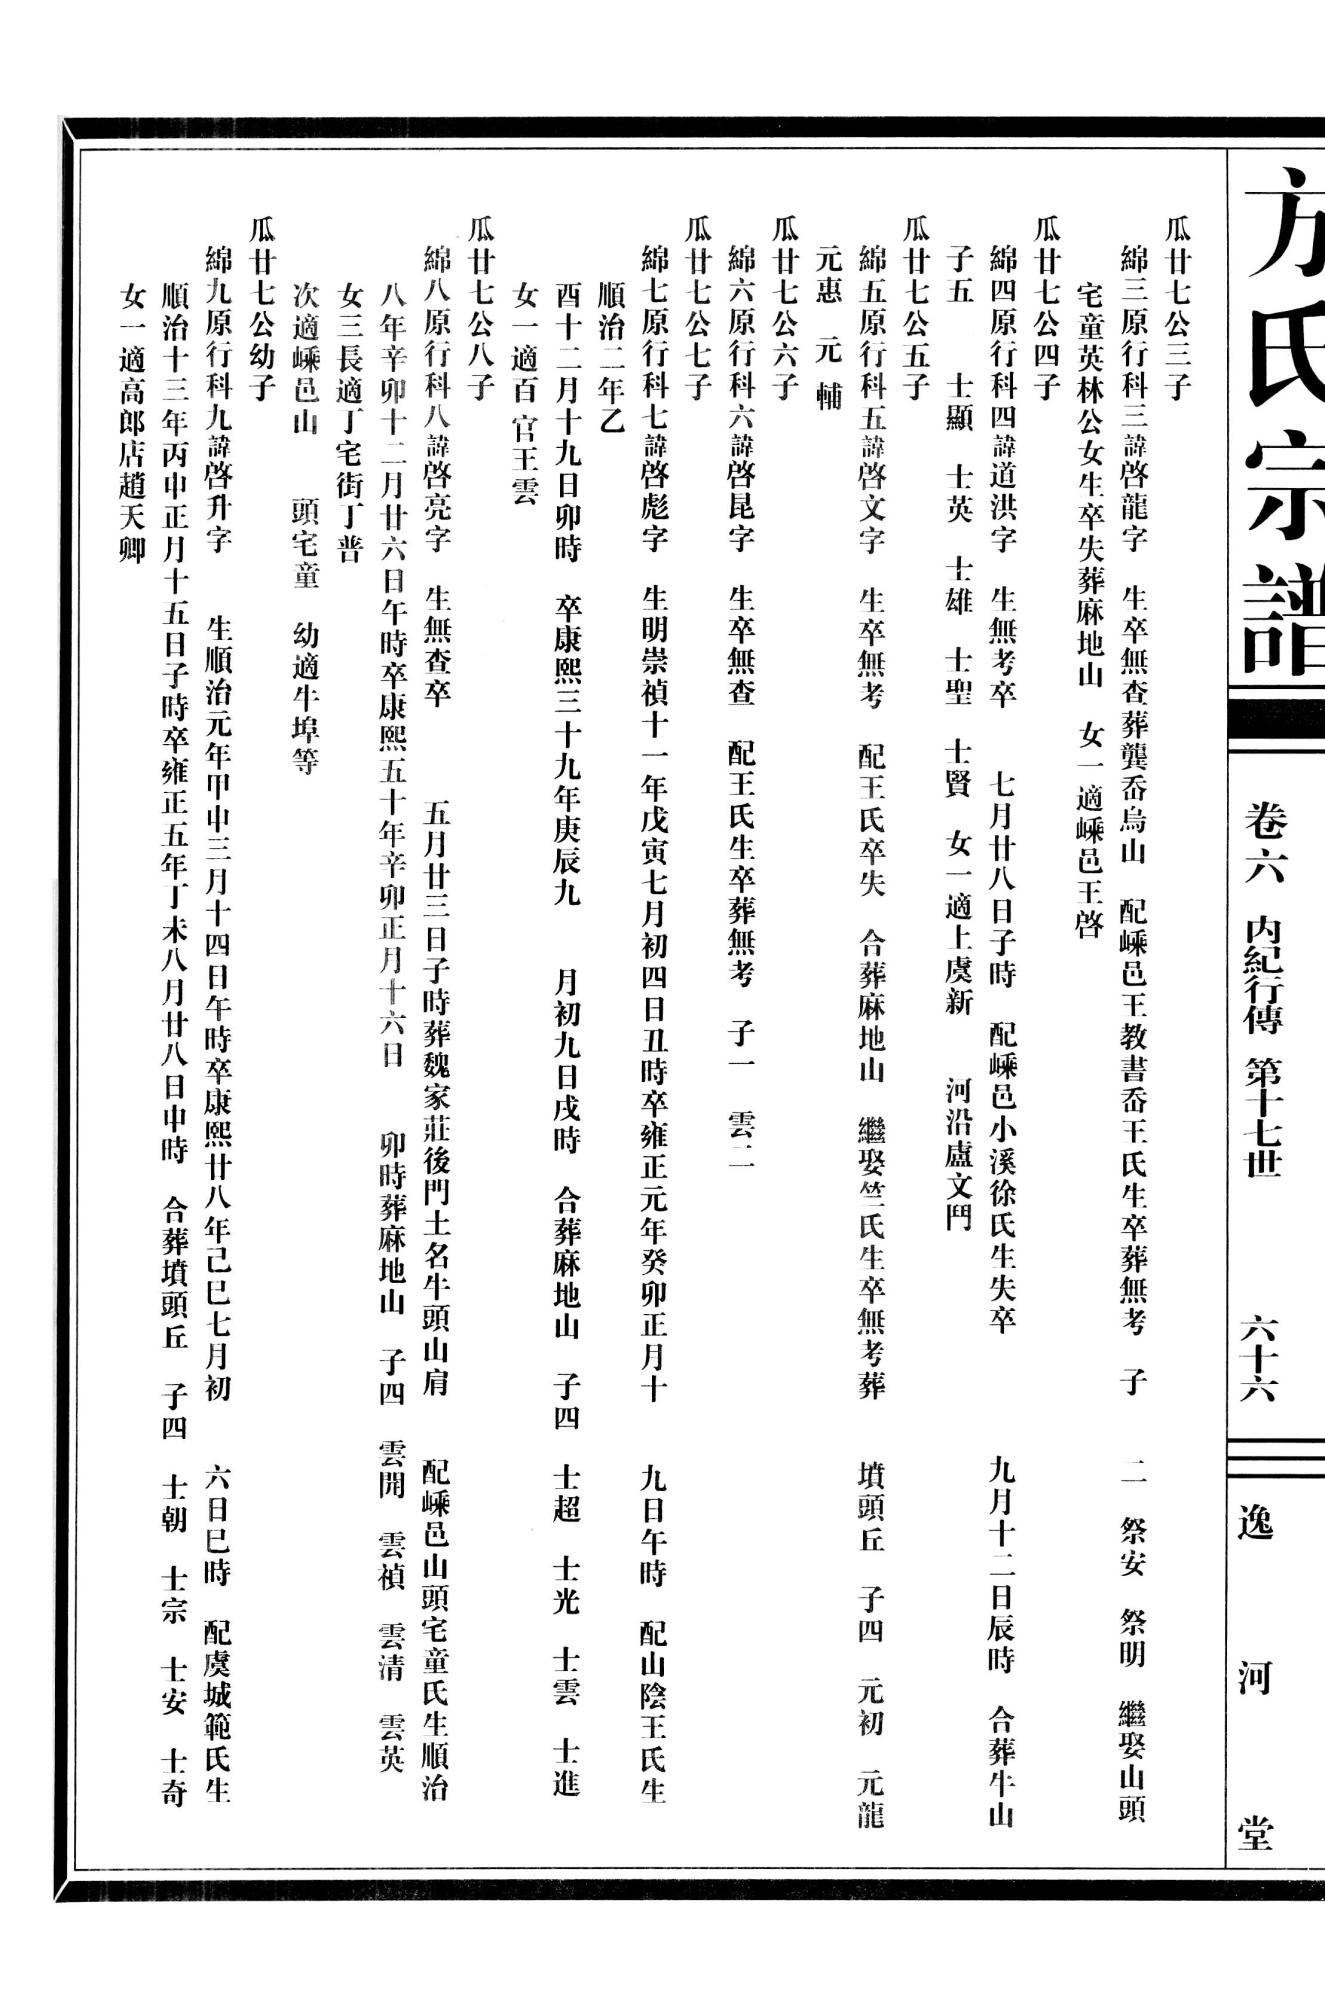 方氏宗譜
卷六 内紀行傳 第十七世 六十六
逸河堂
瓜廿七公三子
綿三原行科三諱啓龍字 生卒無查葬龔岙烏山 配嵊邑王教書岙王氏生卒葬無考 子 二 祭安 祭明 繼娶山頭
宅童英林公女生卒失葬麻地山 女一適嵊邑王啓
瓜廿七公四子
綿四原行科四諱道洪字 生無考卒 七月廿八日子時 配嵊邑小溪徐氏生失卒 九月十二日辰時 合葬牛山
子五 士顯 士英 士雄 士聖 士賢 女一適上虞新 河沿盧文鬥
瓜廿七公五子
綿五原行科五諱啓文字 生卒無考 配王氏卒失 合葬麻地山 繼娶竺氏生卒無考葬 墳頭丘 子四 元初 元龍
元惠 元輔
瓜廿七公六子
綿六原行科六諱啓昆字 生卒無查 配王氏生卒葬無考 子一 雲二
瓜廿七公七子
綿七原行科七諱啓彪字 生明崇禎十一年戊寅七月初四日丑時卒雍正元年癸卯正月十 九日午時 配山陰王氏生
順治二年乙
酉十二月十九日卯時 卒康熙三十九年庚辰九 月初九日戌時 合葬麻地山 子四 士超 士光 士雲 士進
女一適百官王雲
瓜廿七公八子
綿八原行科八諱啓亮字 生無查卒 五月廿三日子時葬魏家莊後門土名牛頭山肩 配嵊邑山頭宅童氏生順治
八年辛卯十二月廿六日午時卒康熙五十年辛卯正月十六日 卯時葬麻地山 子四 雲開 雲禎 雲清 雲英
女三長適丁宅街丁普
次適嵊邑山 頭宅童 幼適牛埠等
瓜廿七公幼子
綿九原行科九諱啓升字 生順治元年甲申三月十四日午時卒康熙廿八年己巳七月初 六日巳時 配虞城範氏生
順治十三年丙申正月十五日子時卒雍正五年丁未八月廿八日申時 合葬墳頭丘 子四 士朝 士宗 士安 士奇
女一適高郎店趙天卿